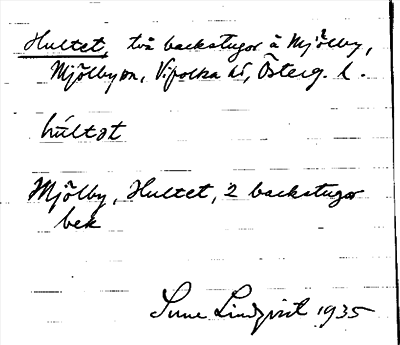 Hultet, två backstugor å Mjölby,
Mjölby sn, Vifolka hd, Österg. l.
húltət
Mjölby, Hultet, 2 backstugor
bek
Sune Lindqvist 1935